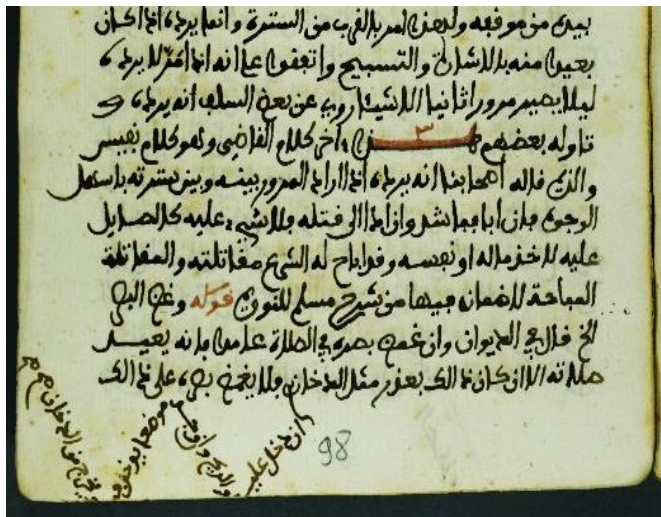 بيده من موقفه ولهذا امر بالقرب من السترة وانما يرده اذا كان
بعيدا منه بالاشارة والتسبيح واتفقوا على انه اذا مر لا يرده
ليلا يصير مرورا ثانيا الا شيئا روي عن بعض السلف انه يرده و
تاوله بعضهم هـذا اخر كلام القاضي وهو كلام نفيس
والذي قاله اصحابنا انه يرده اذا اراد المرور بينه وبين سترته باسهل
الوجوه فان ابا فباشد وان ادا الى قتله فلا شيء عليه كالصايل
عليه لاخذ ماله او نفسه وقد اباح له الشرع مقاتلته والمقاتلة
المباحة لا ضمان فيها من شرح مسلم للنووي قوله وغض البصر
الخ قال في الديوان وان غمض بصره في الصلاة عامدا فانه يعيد
صلاته الا ان كان ذالك بعذر مثل الدخان ولا يغمض بصره على ذالك
ان دخل عليه
والريح وان
98